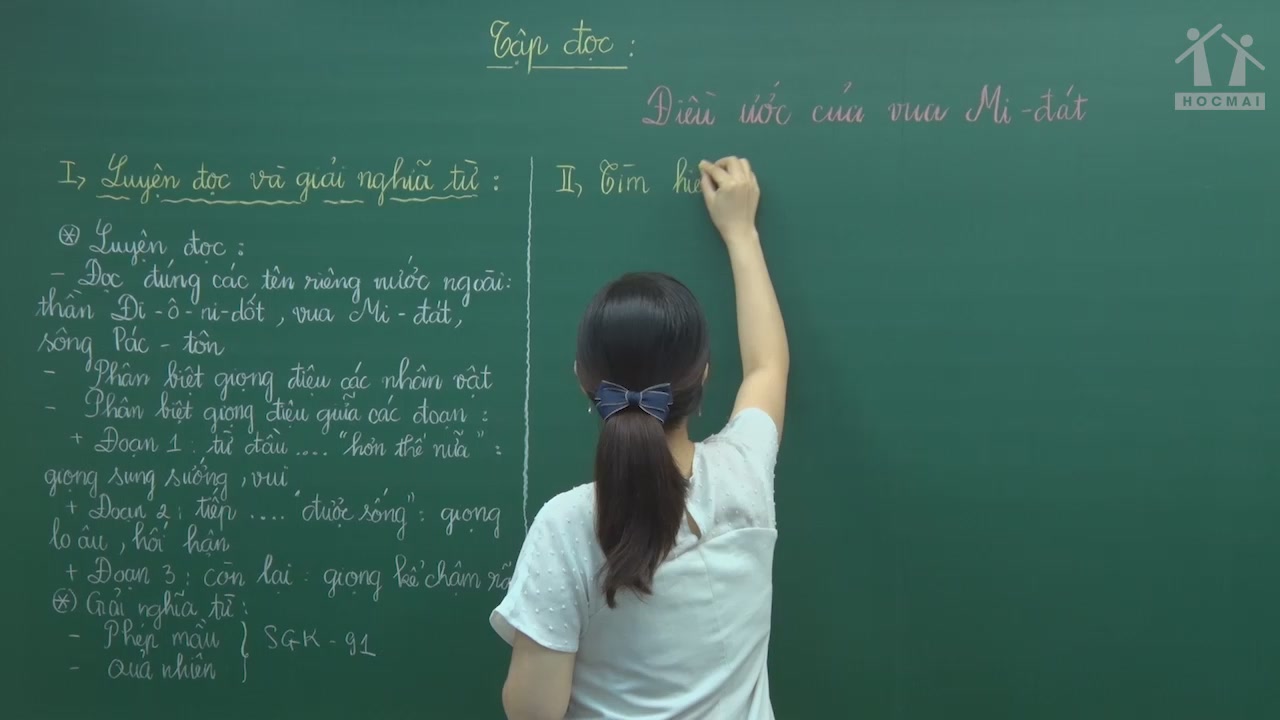 Tập đọc :
HOCMAI
Điều ước của vua Mi-đát
I, Luyện đọc và giải nghĩa từ :
⊛ Luyện đọc :
- Đọc đúng các tên riêng nước ngoài:
thần Đi-ô-ni-dốt, vua Mi-đát,
sông Pác-tôn
- Phân biệt giọng điệu các nhân vật
- Phân biệt giọng điệu giữa các đoạn :
+ Đoạn 1 : từ đầu .... "hơn thế nữa" :
giọng sung sướng, vui
+ Đoạn 2 : tiếp .... "được sống" : giọng
lo âu, hối hận
+ Đoạn 3 : còn lại : giọng kể chậm
⊛ Giải nghĩa từ :
- Phép mầu } SGK - 91
- quả nhiên
II, Tìm